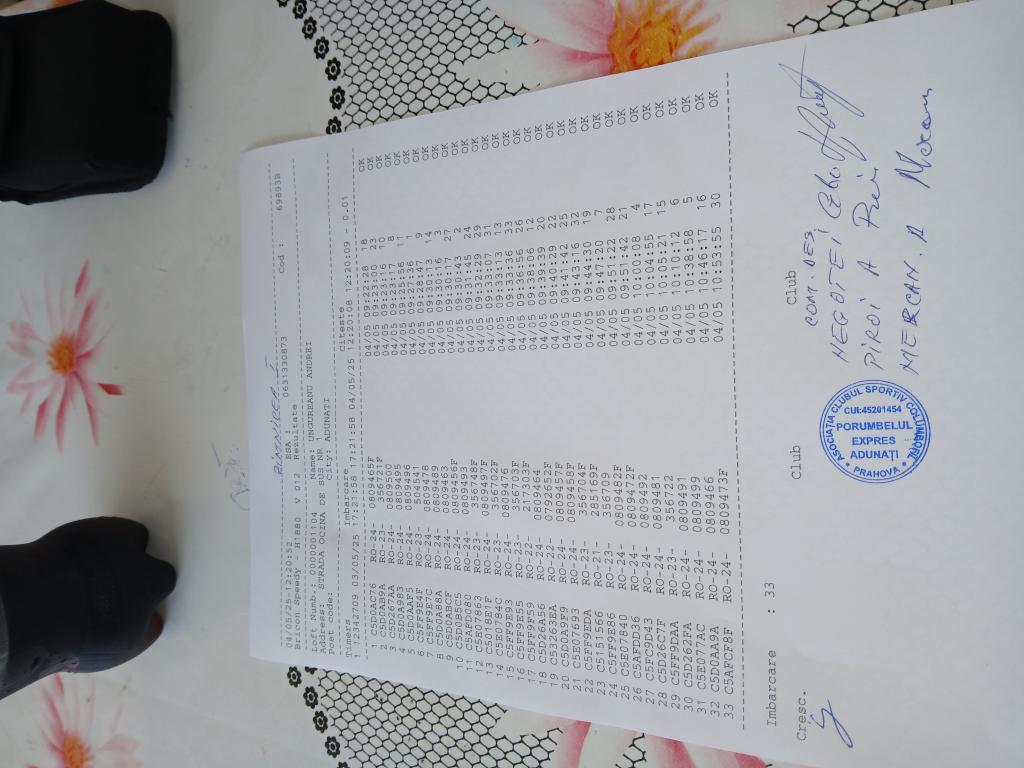 RIMNICEA I
04/05/25-12:20:52 ESA : 0631330873 Cod : 69893B
Bricon Speedy H1880 V 012 Rezultate
Loft Numb.: 0000001104 Name: UNGUREANU ANDREI
Address: STRADA OCINA DE SUS NR 1
Post code: City: ADUNATI
Timers Imbarcare Citeste
1 12342709 03/05/25 17:21:58 17:21:58 04/05/25 12:20:08 12:20:09 - 0.01
1 C5D0AC76 RO-24- 0809465F 04/05 09:22:28 18 OK
2 C5D0AB9A RO-23- 356721F 04/05 09:23:00 23 OK
3 C5D267AA RO-24- 0809500 04/05 09:23:16 10 OK
4 C5D0A983 RO-24- 0809495 04/05 09:23:17 8 OK
5 C5D0AAF5 RO-24- 0809496 04/05 09:25:56 11 OK
6 C5FF9E4F RO-23- 504541 04/05 09:27:36 1 OK
7 C5FF9E7C RO-24- 0809478 04/05 09:28:47 9 OK
8 C5D0A88A RO-24- 0809489 04/05 09:30:13 14 OK
9 C5D0ABCF RO-24- 0809463 04/05 09:30:16 3 OK
10 C5D0B5C5 RO-24- 0809456F 04/05 09:30:17 27 OK
11 C5AFD080 RO-24- 0809453 04/05 09:30:43 2 OK
12 C5E07863 RO-23- 356748F 04/05 09:31:45 24 OK
13 C5018E1F RO-24- 0809497F 04/05 09:33:20 29 OK
14 C5E0784C RO-23- 356702F 04/05 09:33:07 31 OK
15 C5FF9E93 RO-24- 0809476 04/05 09:33:13 13 OK
16 C5FF9EE5 RO-23- 356703F 04/05 09:33:36 33 OK
17 C5FF9F59 RO-22- 217303F 04/05 09:36:56 26 OK
18 C5D26A56 RO-24- 0809464 04/05 09:38:06 12 OK
19 C53263EA RO-22- 0799652F 04/05 09:39:39 20 OK
20 C5D0A9F9 RO-24- 0809457F 04/05 09:40:29 22 OK
21 C5E07693 RO-24- 0809458F 04/05 09:41:42 25 OK
22 C5FF9EDA RO-23- 356704F 04/05 09:43:16 32 OK
23 C5151566 RO-21- 285169F 04/05 09:44:30 19 OK
24 C5FF9E86 RO-23- 356709 04/05 09:47:20 7 OK
25 C5E07840 RO-24- 0809462F 04/05 09:51:22 28 OK
26 C5AFDD36 RO-24- 0809472F 04/05 09:51:42 21 OK
27 C5FC9D43 RO-24- 0809492 04/05 10:00:08 4 OK
28 C5D26C7F RO-24- 0809481 04/05 10:04:55 17 OK
29 C5FF9DAA RO-23- 356722 04/05 10:05:21 15 OK
30 C5D262FA RO-24- 0809491 04/05 10:10:12 6 OK
31 C5E077AA RO-24- 0809499 04/05 10:38:58 5 OK
32 C5D0AA9A RO-24- 0809466 04/05 10:46:17 16 OK
33 C5AFCF8F RO-24- 0809473F 04/05 10:53:55 30 OK
Imbarcare : 33
Cresc. Club Club
COM. DES
NEGOTEI
PIROI A
MERCAN. A
ASOCIAȚIA CLUBUL SPORTIV COLUMBOFIL
CUI:45201454
"PORUMBELUL
EXPRES
ADUNAȚI
PRAHOVA